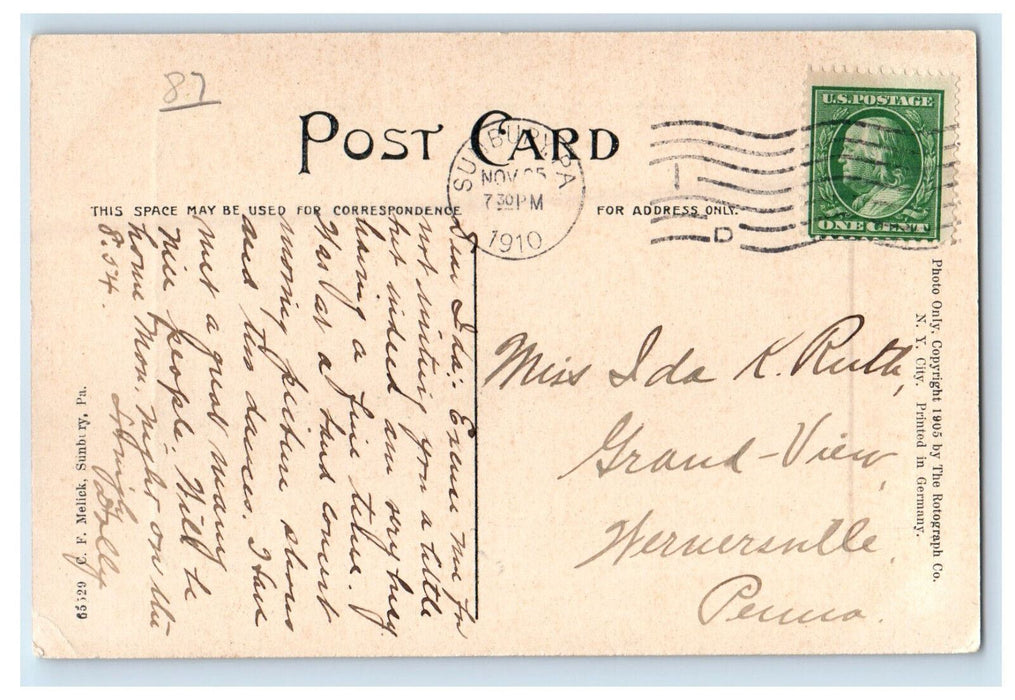 87
POST CARD
SUNBURY, PA
NOV 25
7 30 PM
1910
1
D
U.S. POSTAGE
ONE CENT
THIS SPACE MAY BE USED FOR CORRESPONDENCE
FOR ADDRESS ONLY.
Dear Ida: Excuse me for
not writing you a little
but indeed am very busy
having a fine time.
Was at a band concert
moving picture shows
and two dances. I have
met a great many
nice people. Will be
home Mon. night on the
8.54.
Holly
Miss Ida K. Ruth,
Grand-View,
Wernersville,
Penna.
Photo Only, Copyright 1905 by The Rotograph Co.
N. Y. City. Printed in Germany.
65529 C. F. Melick, Sunbury, Pa.